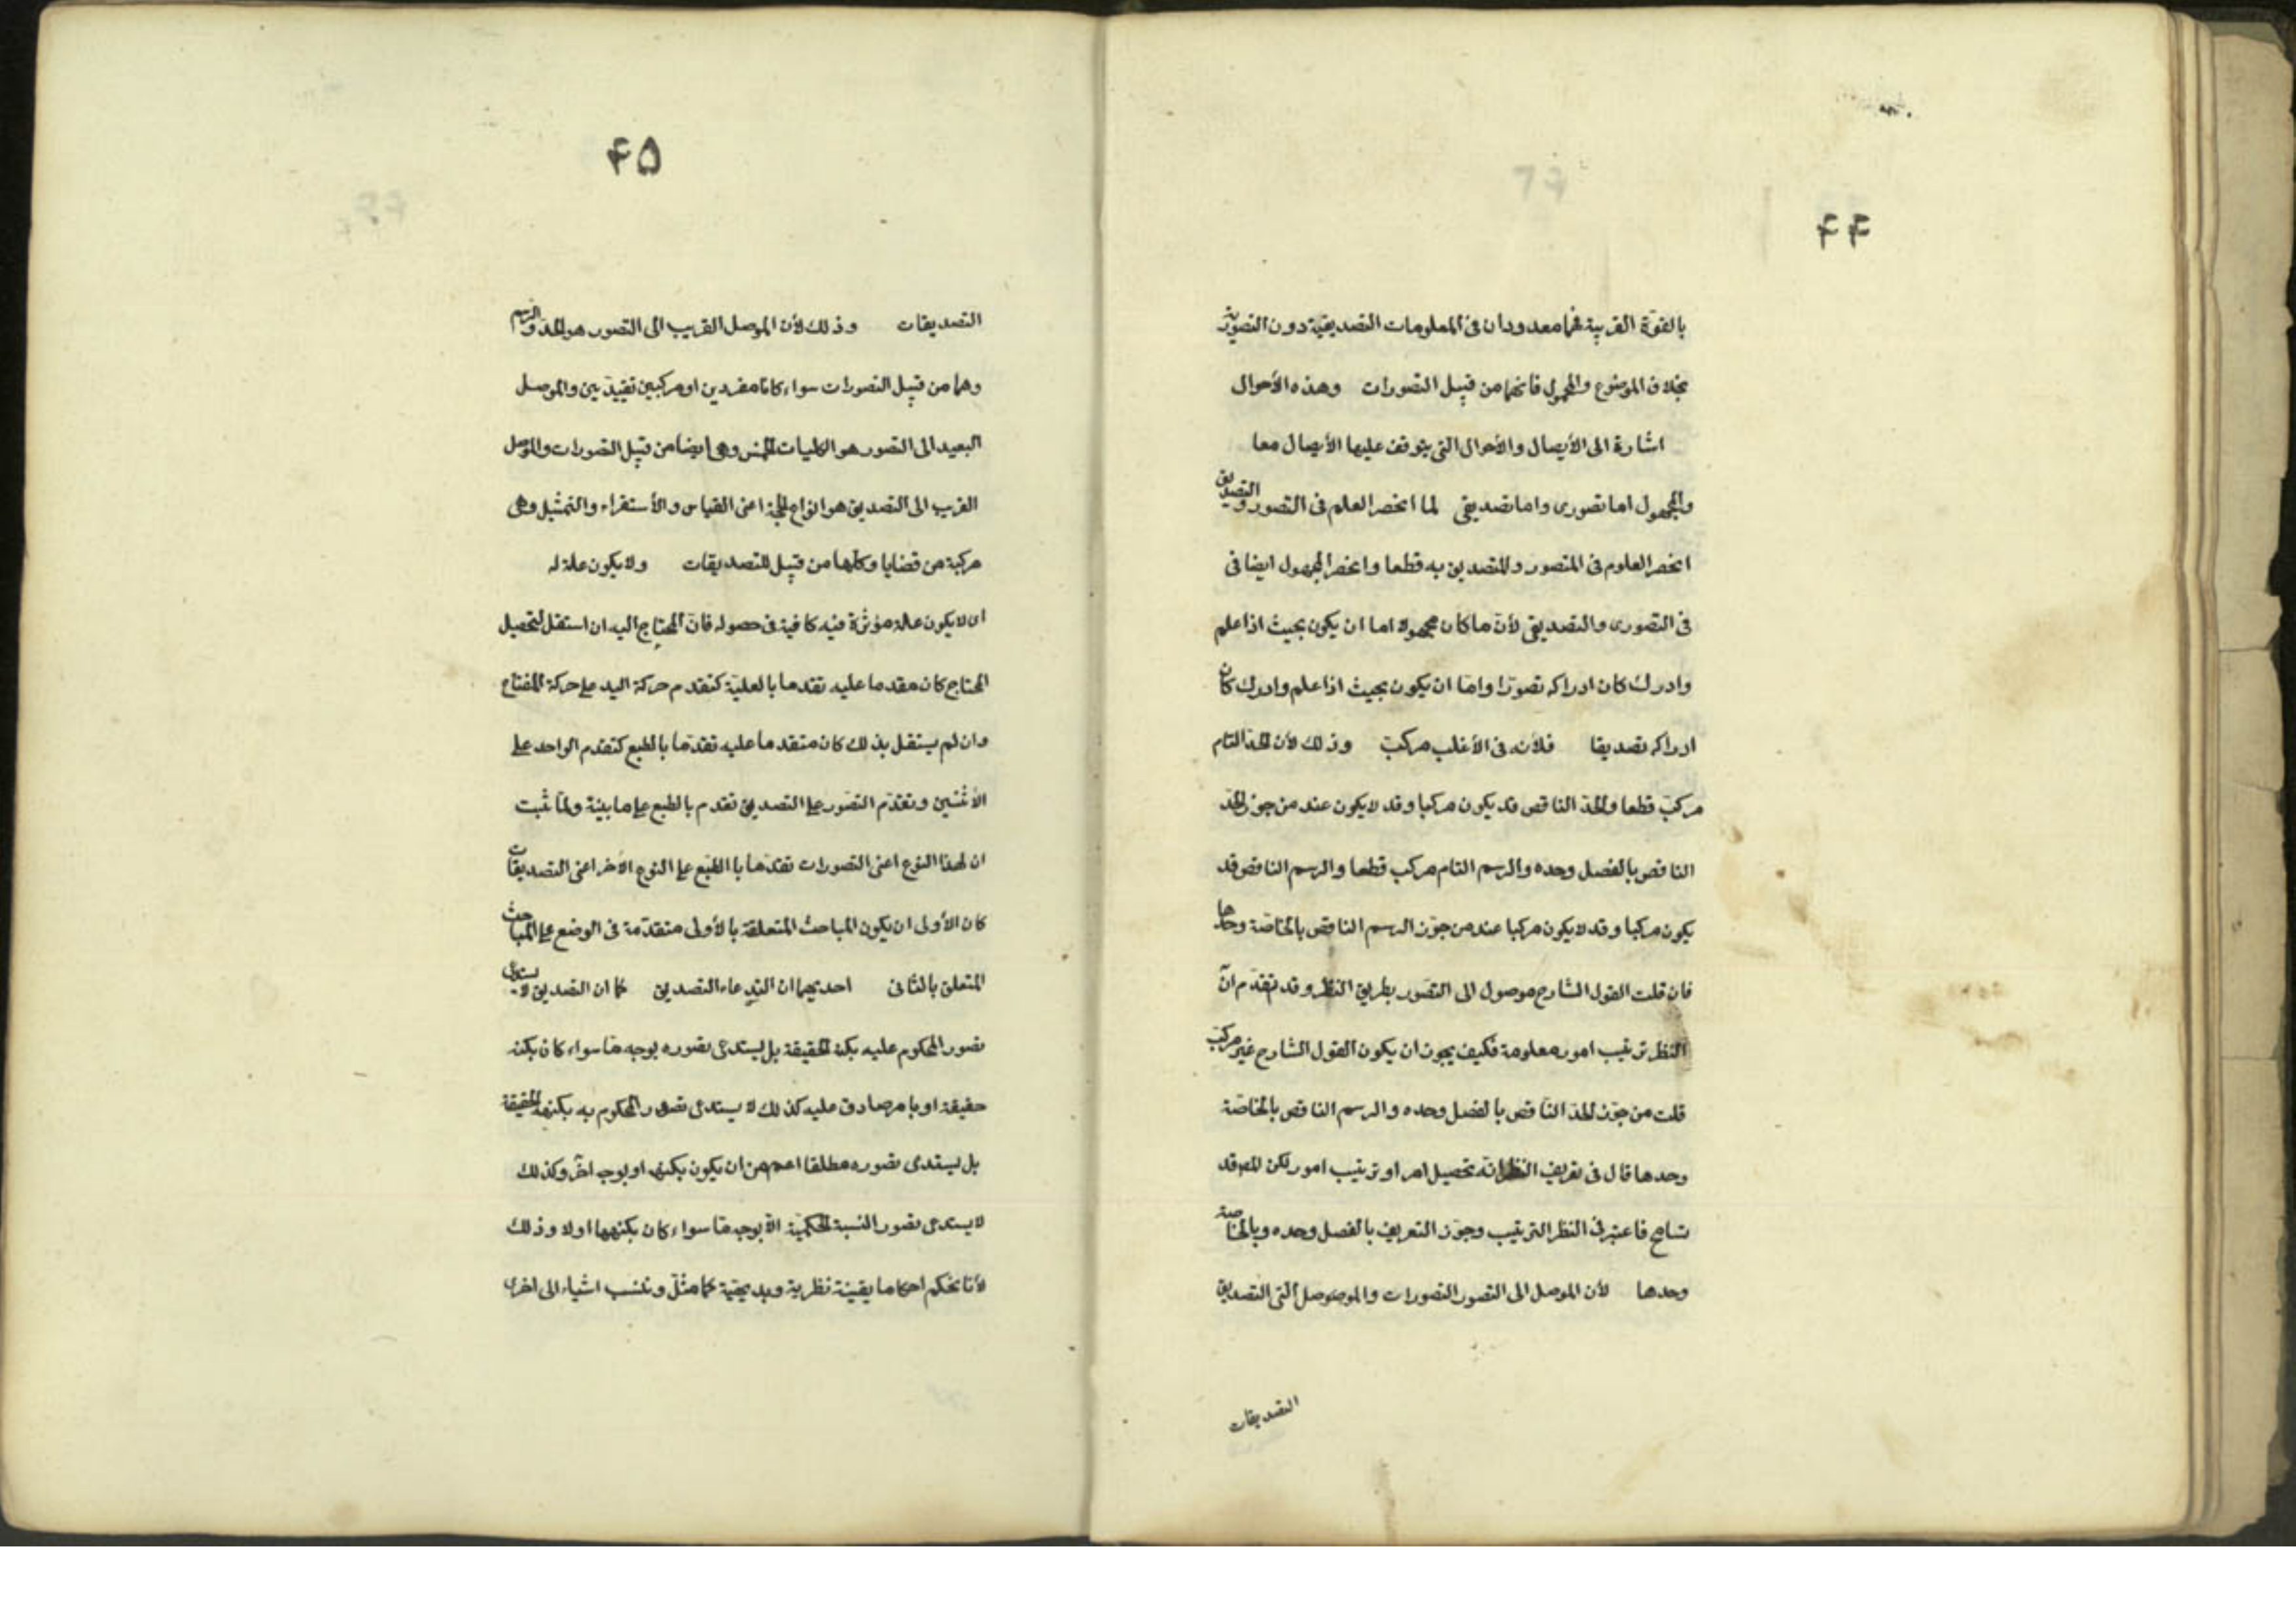 ۴۴
بالقوّة القريبة فهما معدودان فى المعلومات التصديقية دون التصوّرية
بخلاف الموضوع والمحمول فانهما من قبيل التصورات وهذه الأحوال
اشارة الى الأيصال والأحوال التى يتوقف عليها الأيصال معا
والمجهول اما تصورى واما تصديقى لما انحصر العلم فى التصور والتصديق
انحصر العلوم فى المتصور والمتصديق به قطعا وانحصر المجهول ايضا فى
فى التصورى والتصديقى لأن ما كان مجهولا اما ان يكون بحيث اذا علم
وادرك كان ادراكه تصوّرا وامّا ان يكون بحيث اذا علم وادرك كان
ادراكه تصديقا فلأنه فى الأغلب مركبّ وذلك لأن الحدّ التام
مركبّ قطعا والحدّ الناقص قد يكون مركبا وقد لا يكون عند من جوز الحدّ
الناقص بالفصل وحده والرسم التام مركب قطعا والرسم الناقص قد
يكون مركبا وقد لا يكون مركبا عند من جوّز الرسم الناقص بالخاصّة وحدها
فان قلت القول الشارح موصول الى التصّور بطريق النظر وقد تقدّم انّ
النظر ترتيب امور معلومة فكيف يجوز ان يكون القول الشارح غير مركبّ
قلت من جوّز الحدّ الناقص بالفصل وحده والرسم الناقص بالخاصّة
وحدها قال فى تعريف النظر انّه تحصيل امر او ترتيب امور لكن المص قد
تسامح فاعتبر فى النظر الترتيب وجوّز التعريف بالفصل وحده وبالخاصة
وحدها لأن الموصل الى التصور التصورات والموصوصل الى التصديق
التصديقات
۴۵
التصديقات وذلك لأن الموصل القريب الى التصور هو الحدّ والرسم
وهما من قبيل التصورات سواء كانا مفردين او مركبين تقييديين والموصل
البعيد الى التصور هو الكليات الخمس وهى ايضا من قبيل التصورات والموصل
القرب الى التصديق هو انواع الحجة اعنى القياس والأستقراء والتمثيل وهى
مركبة من قضايا وكلّها من قبيل التصديقات ولا يكون علة له
اى لا يكون علة مؤثرة فيه كافية فى حصوله فانّ المحتاج اليه ان استقل لتحصيل
المحتاج كان مقدما عليه تقدما بالعليّة كتقدم حركة اليد على حركة المفتاح
وان لم يستقل بذلك كان متقدما عليه تقدّما بالطبع كتقدم الواحد على
الأثنين وتقدّم التصّور على التصديق تقدم بالطبع على ما بينّة ولمّا ثبت
ان لهذا النوع اعنى التصورات تقدّما با الطبع على النوع الأخر اعنى التصديقات
كان الأولى ان يكون المباحث المتعلقة بالأولى متقدّمة فى الوضع على المباحث
المتعلق بالثانى احديهما ان التدعاء التصديق كما ان التصديق لا يستدعى
تصور المحكوم عليه بكنه الحقيقة بل يستدعى تصوره بوجه مّا سواء كان بكنه
حقيقة او بامر صادق عليه كذلك لا يستدعى تصور المحكوم به بكنهه الحقيقة
بل يستدعى تصوره مطلقا اعم من ان يكون بكنهه او بوجه اخر وكذلك
لا يستدعى تصور النسبة الحكميّة الّا بوجه مّا سواء كان بكنهها اولا وذلك
لأنا نحكم احكاما يقينيّة نظرية وبديهيّة كما مثلّ وننسب اشياء الى اخرى